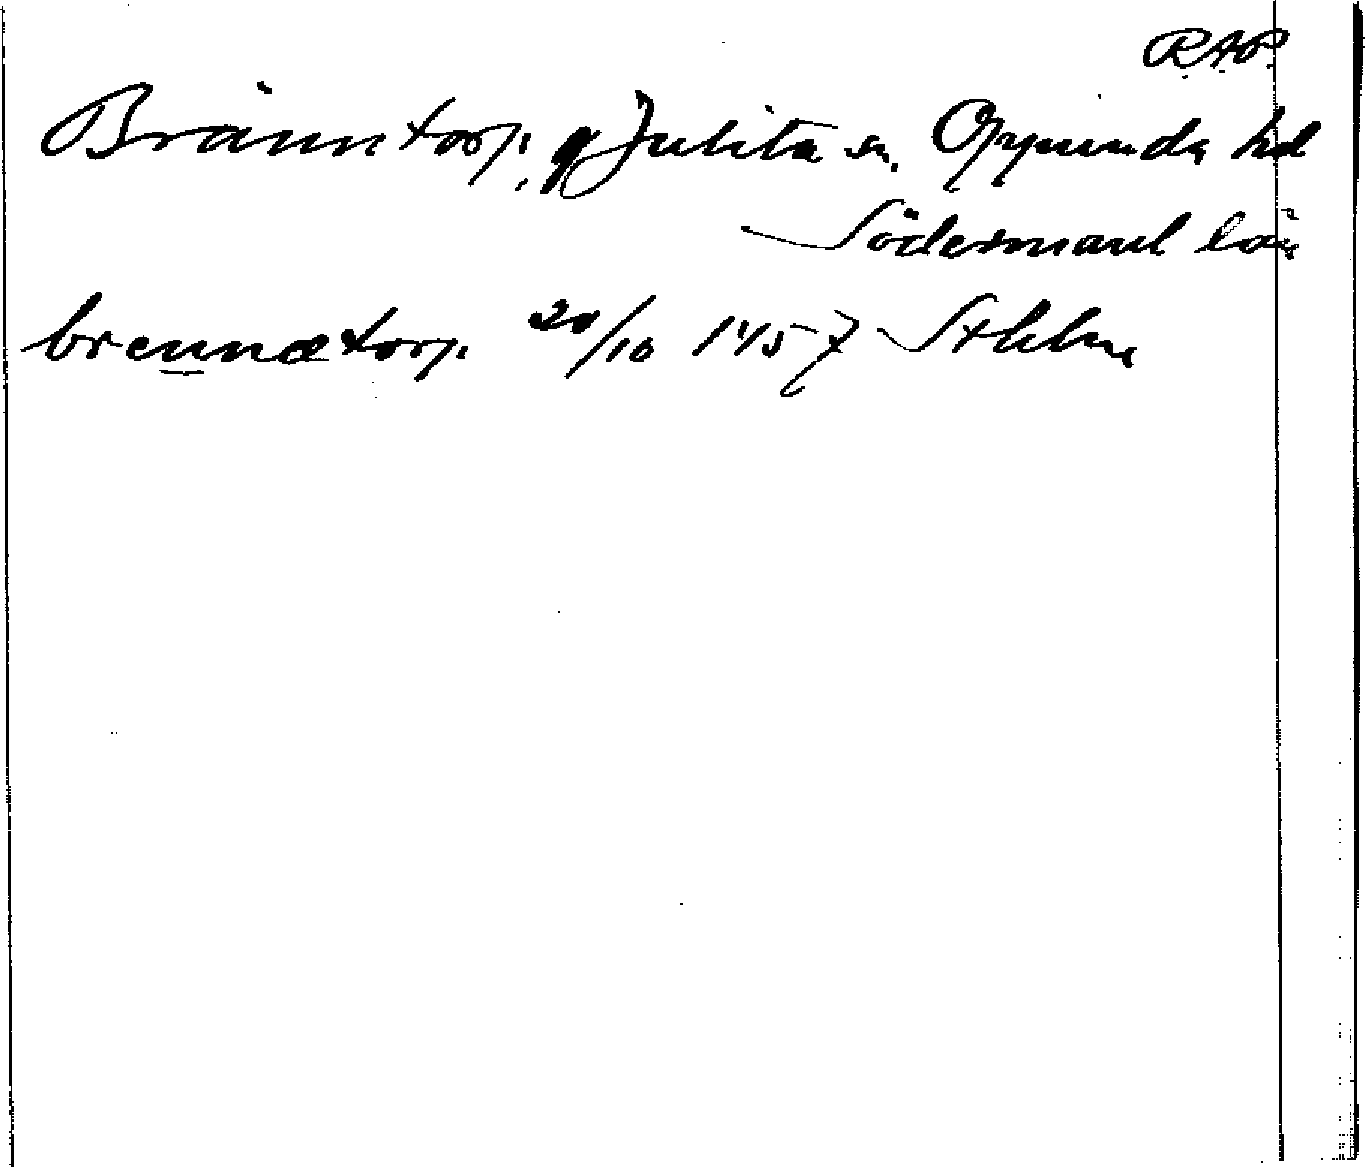 R.A.P.
Bränntorp, g Julita sn, Oppunda hd
Södermanl län
brennætorp 20/10 1457 Sthlm